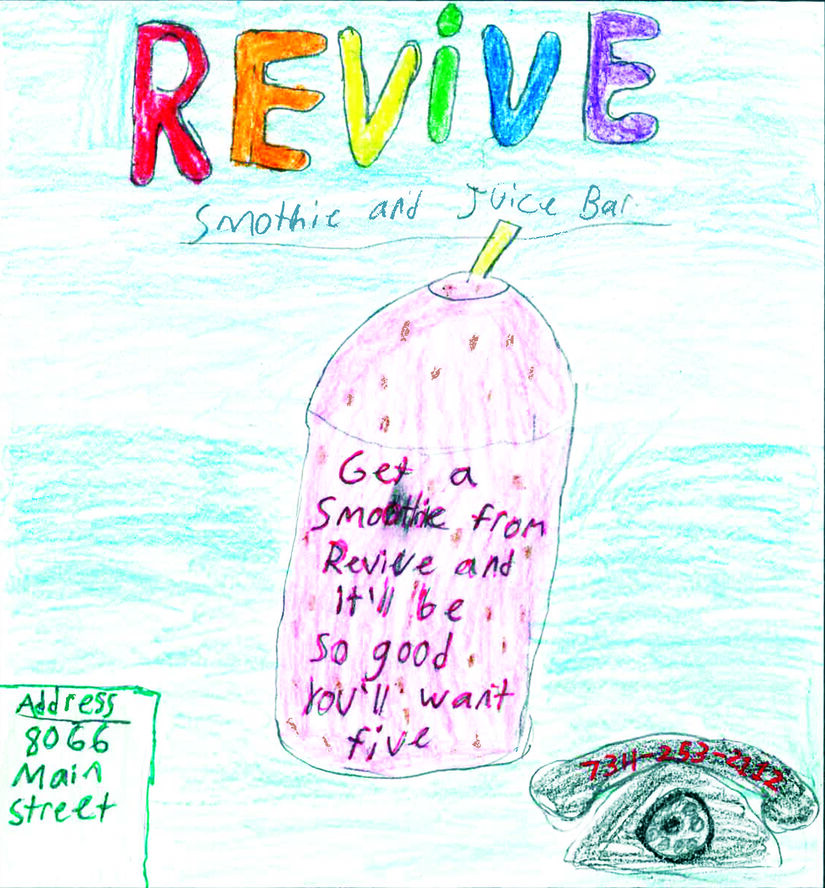 REViVE
Smothie and Juice Bar
Get a
Smoothie from
Revive and
It'll be
so good
You'll want
five
Address
8066
Main
Street
734-253-2112